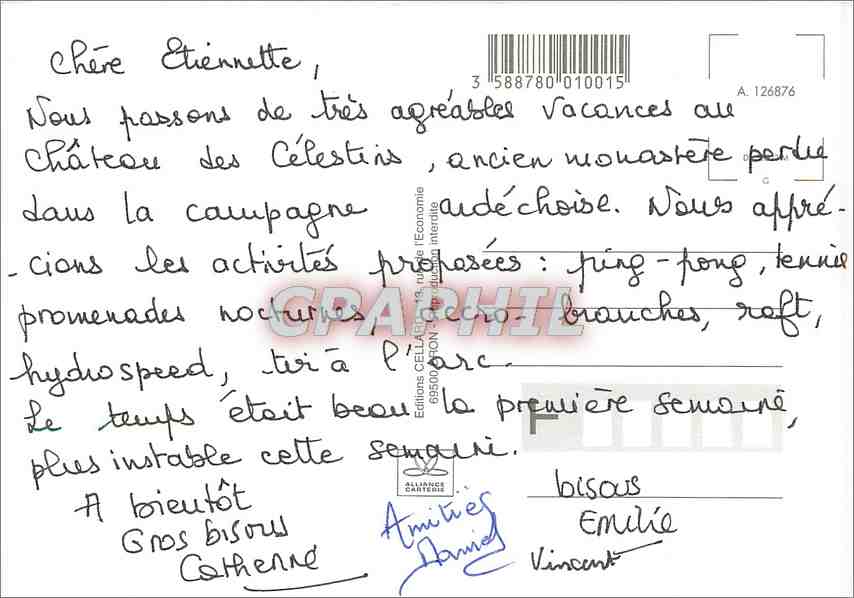 Chère Etiennette,
3 588780 010015
A. 126876
Nous passons de très agréables vacances au
château des Célestins, ancien monastère perdu
dans la campagne audéchoise. Nous appré-
-cions les activités proposées : ping-pong, tennis
promenades nocturnes, accro-branches, raft,
hydrospeed, tir à l'arc.
Le temps était beau la première semaine,
plus instable cette semaine.
A bientôt
Gros bisous
Catherine
Amitiés
Daniel
bisous
Emilie
Vincent
Editions CELLARD - 13, rue de l'Economie
69500 BRON - Reproduction interdite
CPAPHIL
ALLIANCE
CARTERIE
F
G